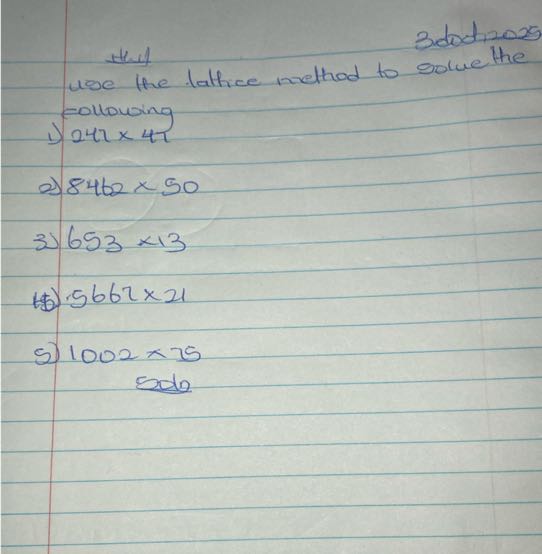 3rd oct, 2025
use the lattice method to solve the
following
1) 247 x 47
2) 8462 x 50
3) 653 x 13
4) 5667 x 21
5) 1002 x 75
Soln